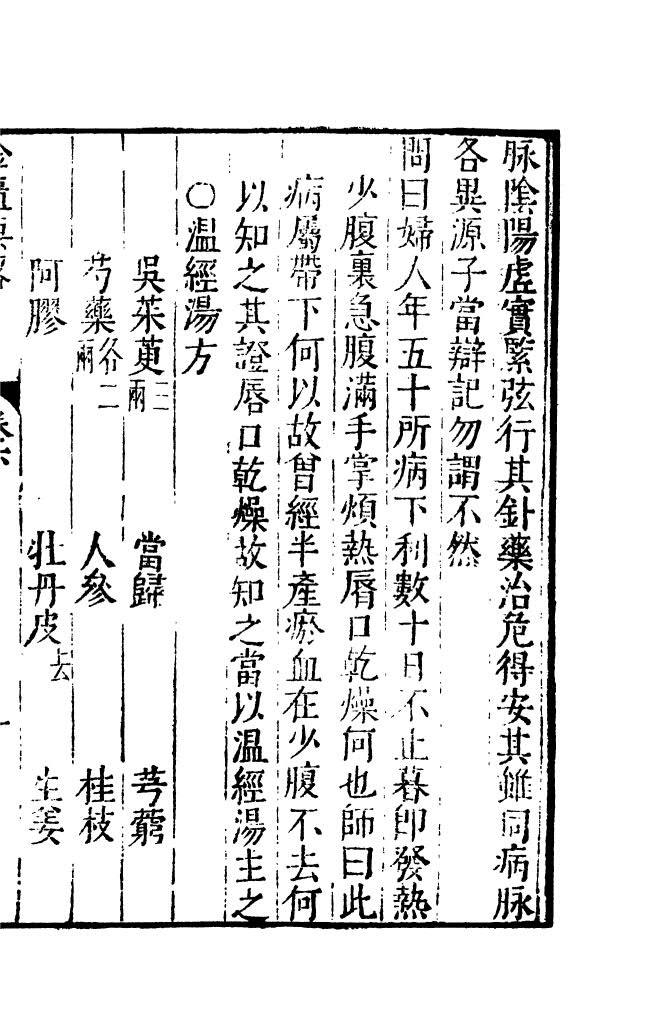 脉陰陽虛實緊弦行其針藥治危得安其雖同病脉
各異源子當辯記勿謂不然
問曰婦人年五十所病下利數十日不止暮即發熱
少腹裏急腹滿手掌煩熱脣口乾燥何也師曰此
病屬帶下何以故曾經半產瘀血在少腹不去何
以知之其證唇口乾燥故知之當以溫經湯主之
○溫經湯方
吳茱萸三兩 當歸 芎藭
芍藥各二兩 人參 桂枝
阿膠 牡丹皮去 生姜
金匱要略 卷六